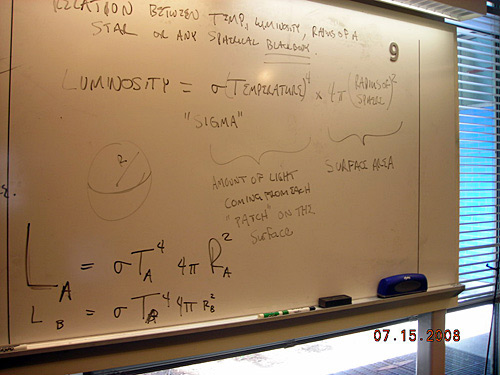 RELATION BETWEEN TEMP, LUMINOSITY, RADIUS OF A
STAR OR ANY SPHERICAL BLACKBODY
9
LUMINOSITY = σ(TEMPERATURE)⁴ × 4π (RADIUS OF SPHERE)²
"SIGMA"
AMOUNT OF LIGHT
COMING FROM EACH
"PATCH" ON THE
SURFACE
SURFACE AREA
R
L_A = σ T_A⁴ 4π R_A²
L_B = σ T_B⁴ 4π R_B²
07.15.2008